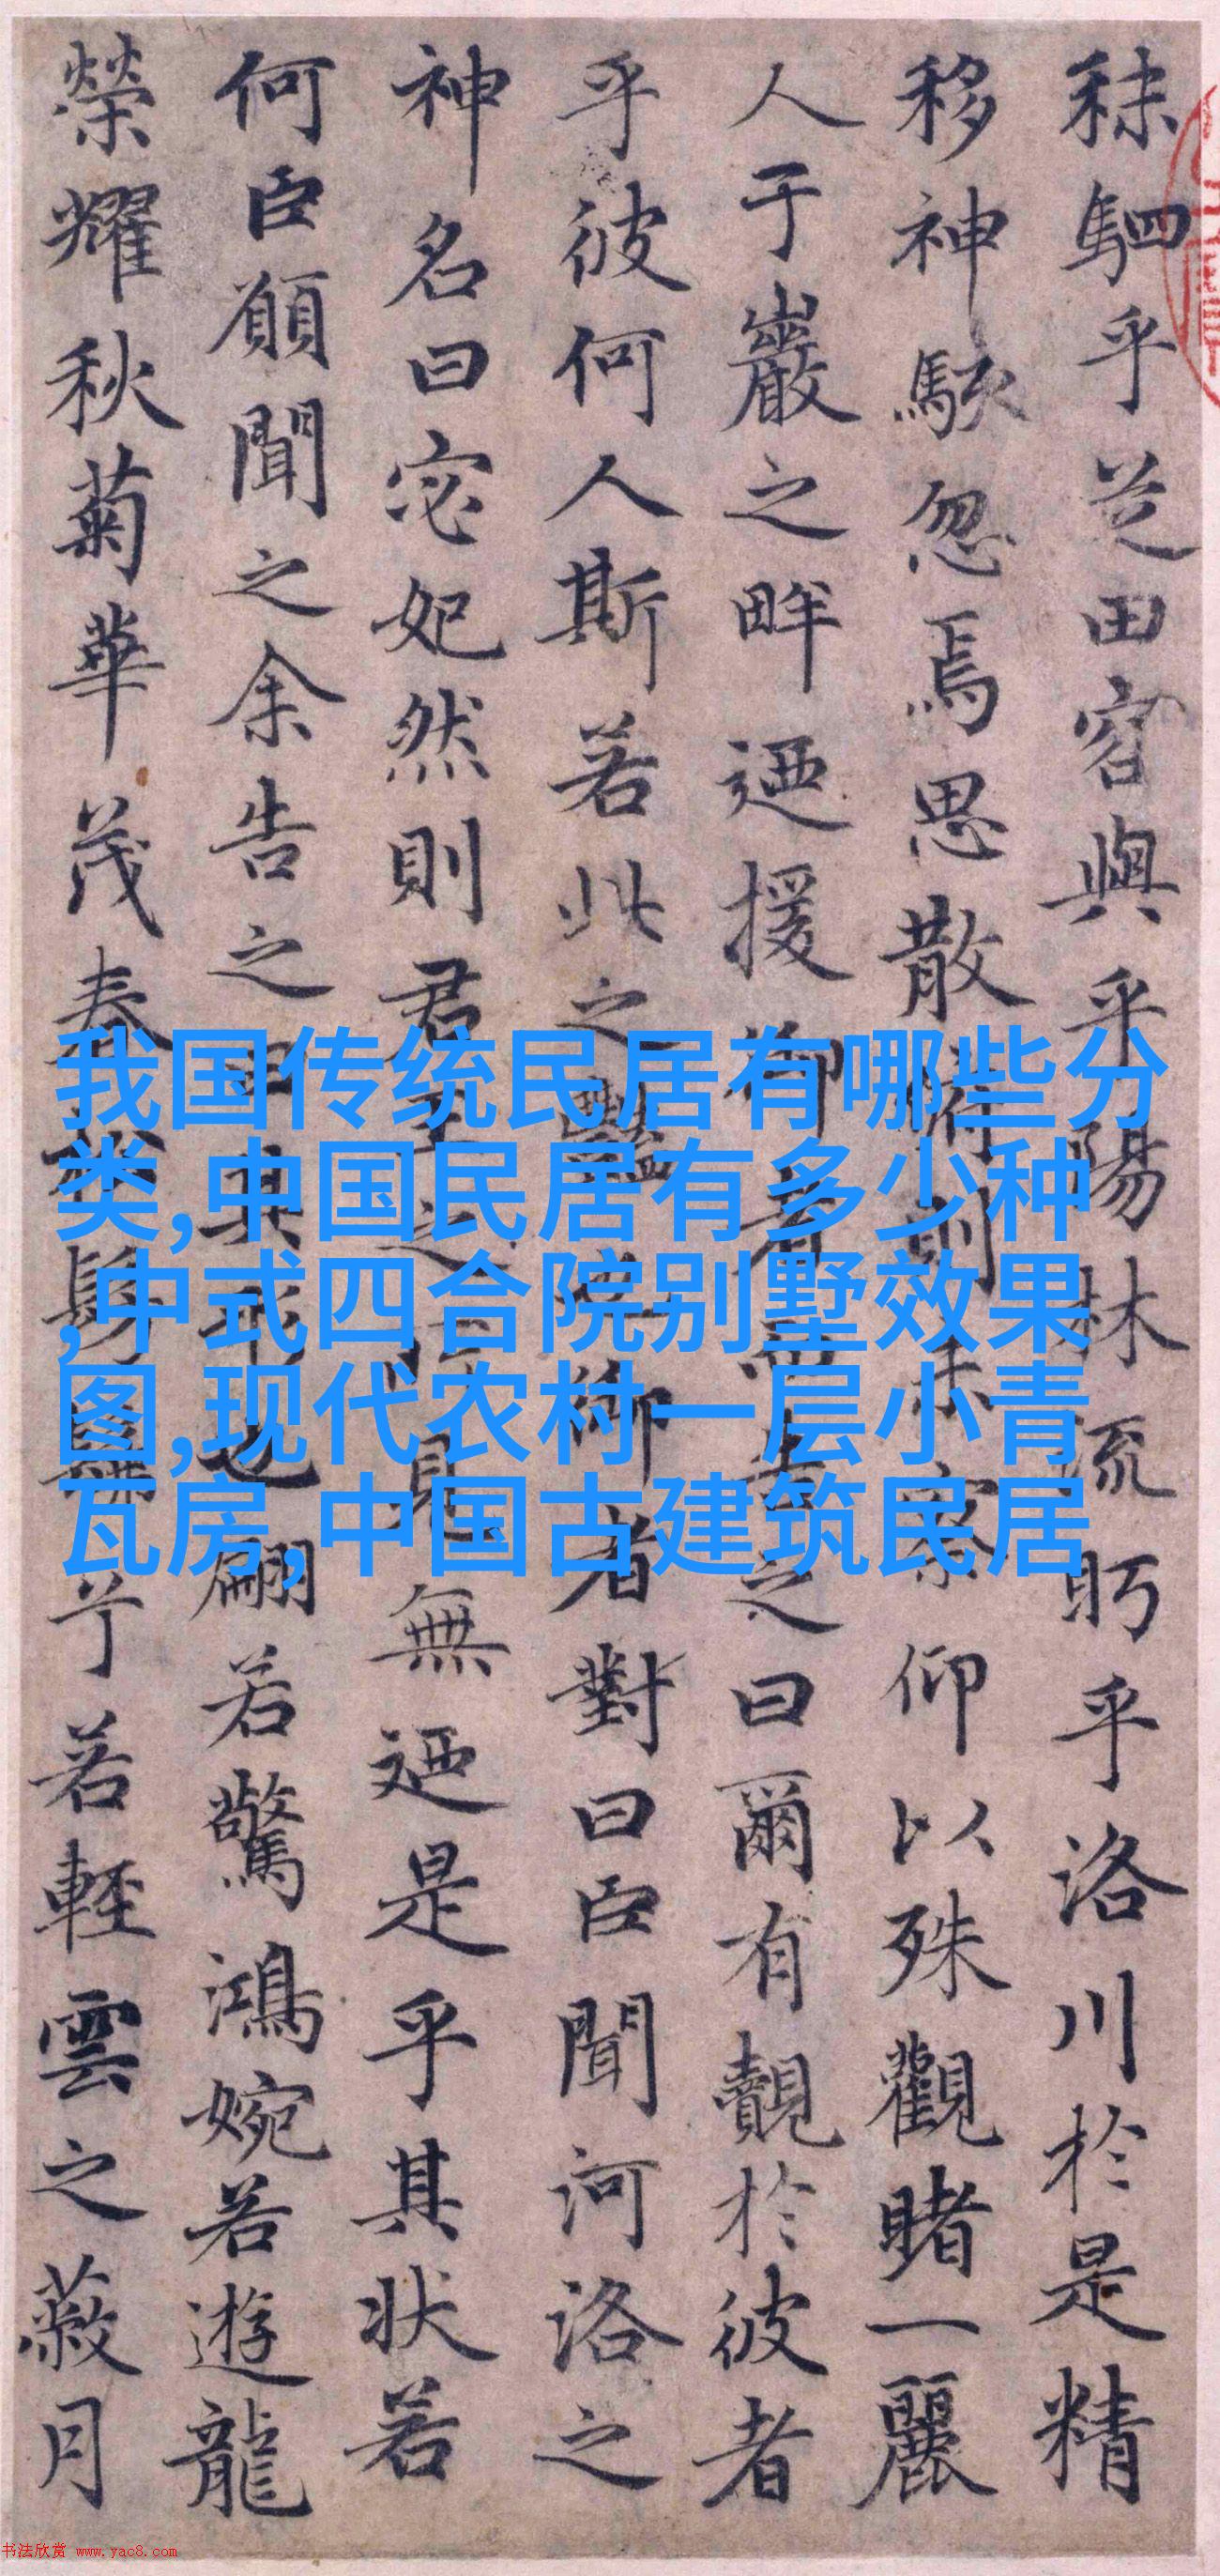 秣駟乎芝田容與乎陽林流眄乎洛川於是精
移神駭忽焉思散俯則未察仰以殊觀睹一麗
人于巖之畔迺援御者而告之曰爾有覿於彼者
乎彼何人斯若此之豔也御者對曰臣聞河洛之
神名曰宓妃然則君王之所見無迺是乎其狀若
何臣願聞之余告之曰其形也翩若驚鴻婉若遊龍
榮耀秋菊華茂春松髣髴兮若輕雲之蔽月
我国传统民居有哪些分
类,中国民居有多少种
,中式四合院别墅效果
图,现代农村一层小青
瓦房,中国古建筑民居
书法欣赏 www.yac8.com